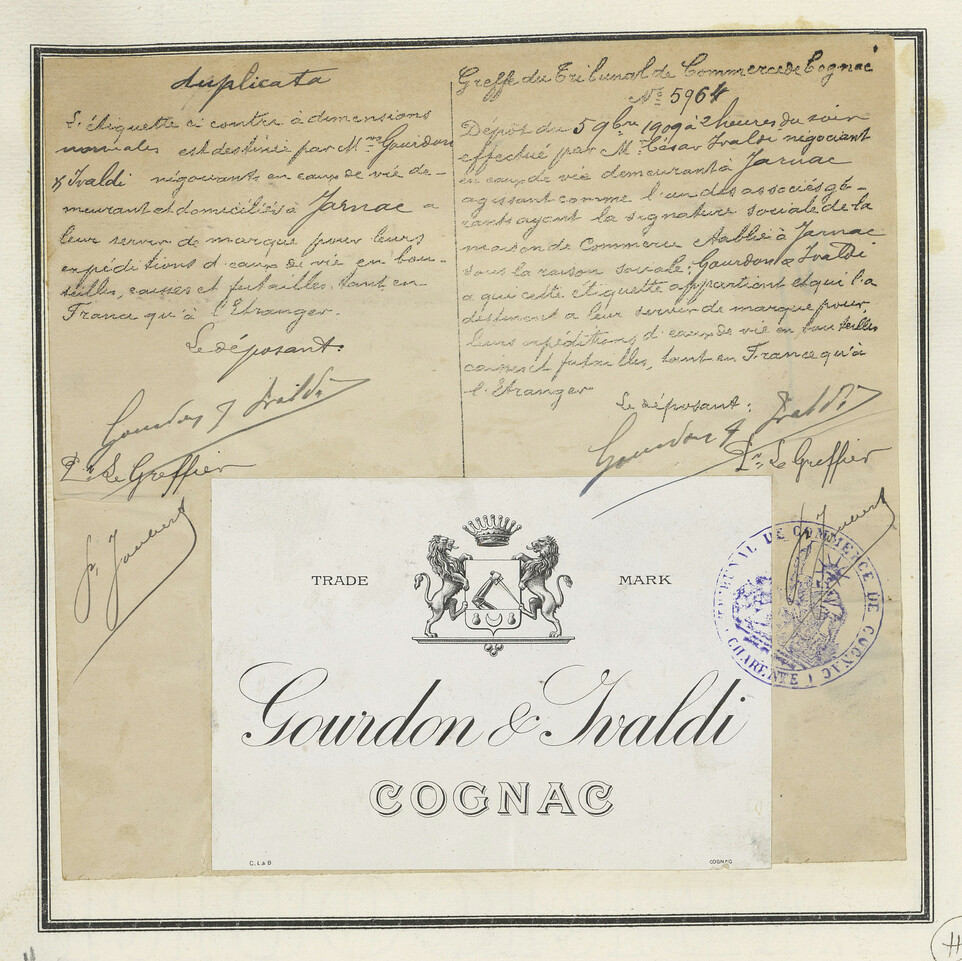 duplicata
L'étiquette ci contre à dimensions
normales est destinée par Mrs Gourdon
& Ivaldi négociants en eaux de vie de-
meurant et domiciliés à Jarnac a
leur servir de marque pour leurs
expéditions d'eaux de vie en bou-
teilles, caisses et futailles, tant en
France qu'à l'Etranger.
Le déposant:
Gourdon & Ivaldi
Pr Le Greffier
Greffe du Tribunal de Commerce de Cognac
No 5964
Dépôt du 5 9bre 1909 à 2 heures du soir
effectué par Mr César Ivaldi négociant
en eaux de vie demeurant à Jarnac
agissant comme l'un des associés gé-
rants ayant la signature sociale de la
maison de Commerce établie à Jarnac
sous la raison sociale: Gourdon & Ivaldi
a qui cette étiquette appartient et qui l'a
destinent a leur servir de marque pour
leurs expéditions d'eaux de vie en bouteilles
caisses et futailles, tant en France qu'à
l'Etranger
Le déposant:
Gourdon & Ivaldi
Pr Le Greffier
TRADE MARK
Gourdon & Ivaldi
COGNAC
C. L & D
COGNAC
TRIBUNAL DE COMMERCE DE COGNAC
CHARENTE